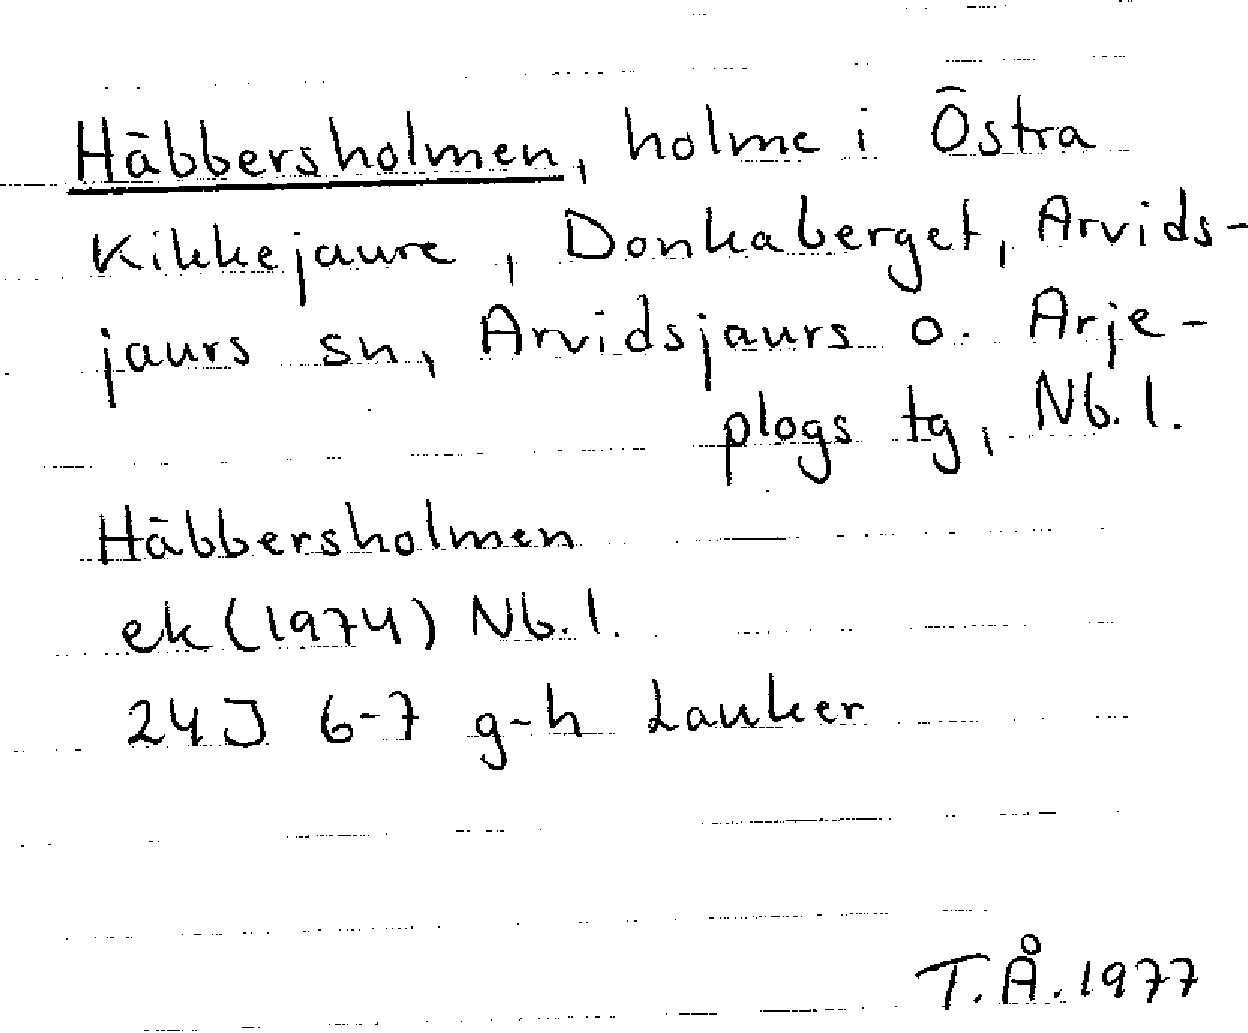 Häbbersholmen, holme i Östra
Kikkejaure, Donkaberget, Arvids-
jaurs sn, Arvidsjaurs o. Arje-
plogs tg, Nb. l.
Häbbersholmen
ek (1974) Nb. l.
24J 6-7 g-h Lauker
T.Å. 1977